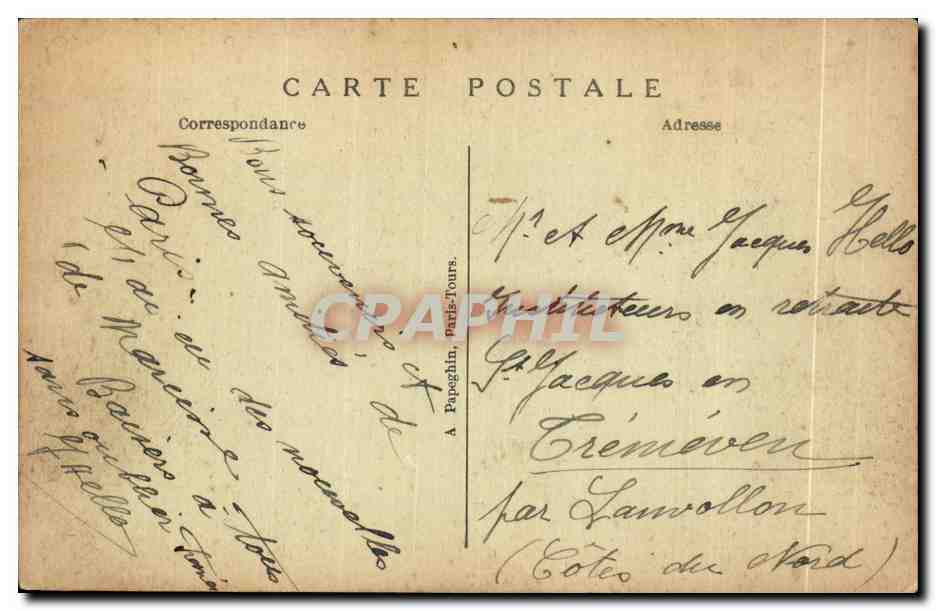 CARTE POSTALE
Correspondance
Adresse
Bons souvenirs et
Bonnes amitiés, de
Paris. de des nouvelles
et de Marcisse
Baisers à tous
sans oublier
YHello
A Papeghin, Paris-Tours.
Mr et Mme Jacques Hello
Instituteurs en retraite
St Jacques en
Tréméven
par Lanvollon
(Côtes du Nord)
CPAPHIL